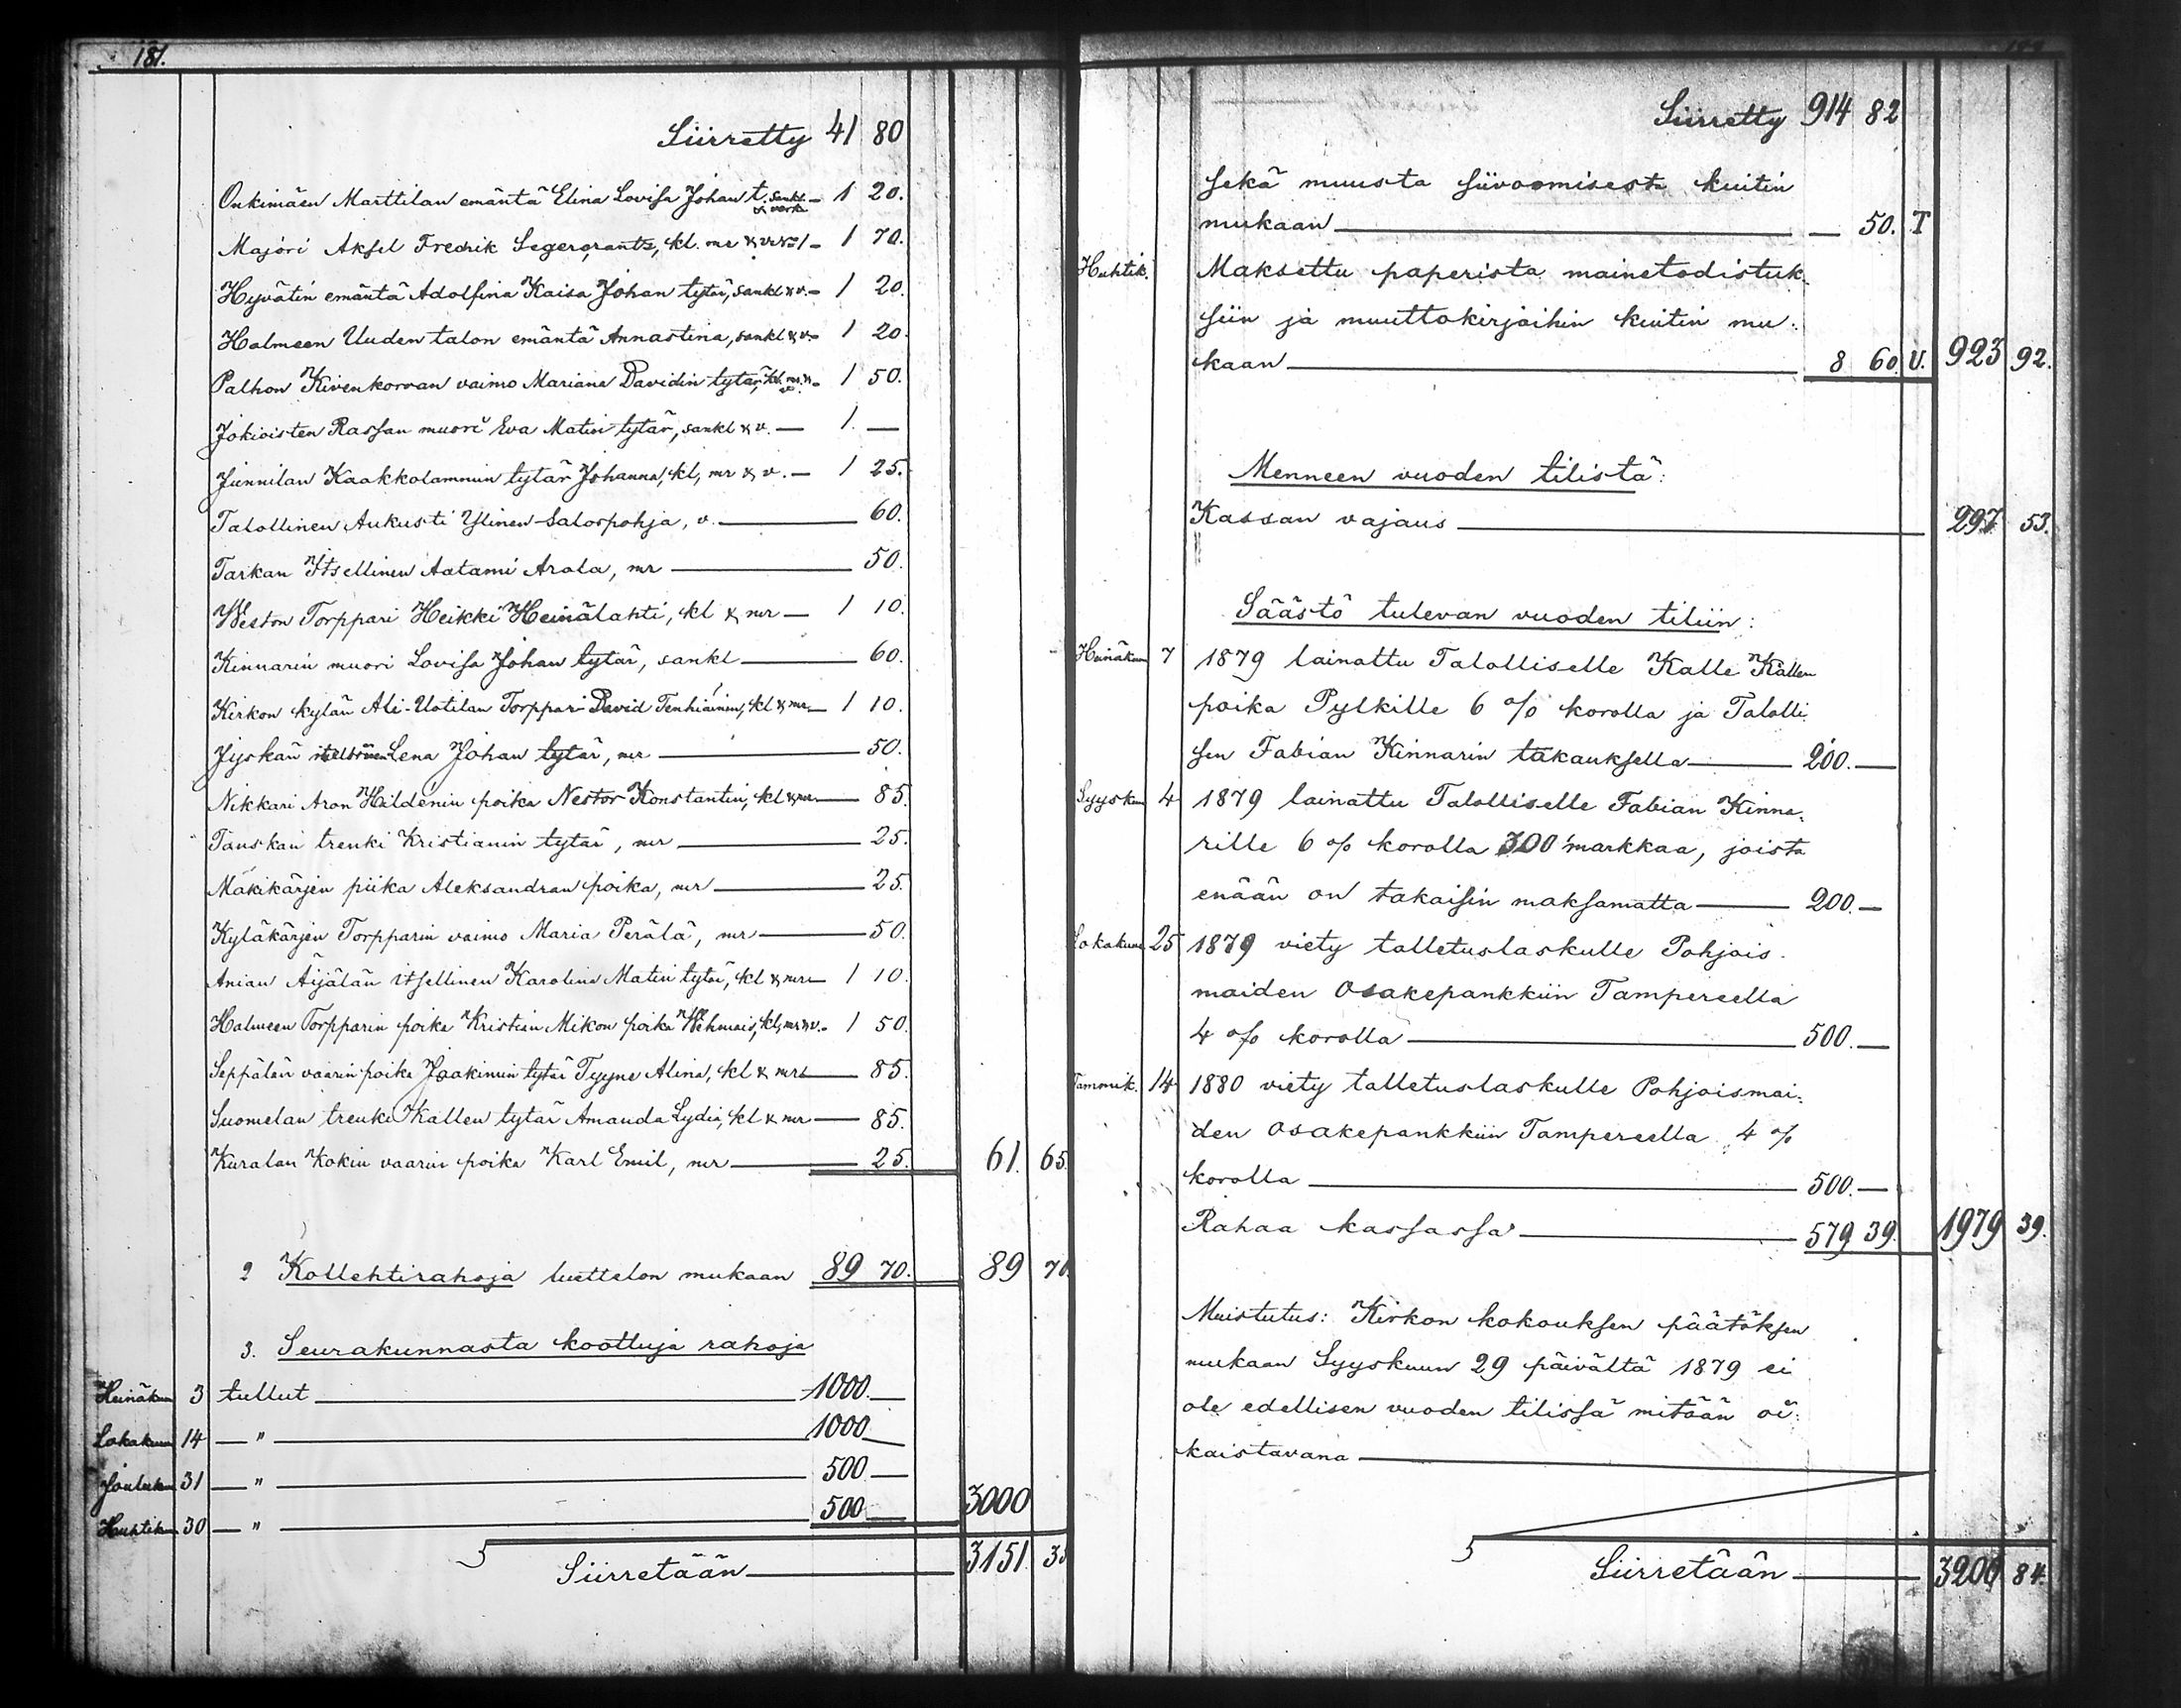 181.
Siirretty 41 80
Onkimäen Marttilan emäntä Elina Lovisa Johan t. sankl. & verk. — 1 20.
Majori Aksel Fredrik Segercrantz, kl. mr & — 1 70.
Hyvätin emäntä Adolfina Kaisa Johan tytär, sankl & v. — 1 20.
Halmeen Uuden talon emäntä Annastina, sankl & v. — 1 20.
Palhon Kivenkorvan vaimo Mariana Davidin tytär, kl. mr. & v. — 1 50.
Jokioisten Rassan muori Eva Matin tytär, sankl & v. — 1. —
Junnilan Kaakkolammin tytär Johanna, kl, mr & v. — 1 25.
Talollinen Aukusti Ylinen-Salospohja, v. — 60.
Tarkan Itsellinen Aatami Arola, mr — 50.
Weston Torppari Heikki Heinälahti, kl & mr — 1 10.
Kinnarin muori Lovisa Johan tytär, sankl — 60.
Kirkon kylän Ali-Uotilan Torppari David Tenhiäinen, kl & mr — 1 10.
Jyskän itsellinen Lena Johan tytär, mr — 50.
Nikkari Aron Hildenin poika Nestor Konstantin, kl & mr — 85.
Tanskan trenki Kristianin tytär, mr — 25.
Mäkikärjen piika Aleksandran poika, mr — 25.
Kyläkärjen Torpparin vaimo Maria Perälä, mr — 50.
Anian Äijälän itsellinen Karolina Matin tytär, kl & mr — 1 10.
Halmeen Torpparin poika Kristian Mikon poika Wehmais, kl, mr & v. — 1 50.
Seppälän vaarin poika Joakimin tytär Tyyne Alina, kl & mr — 85.
Suomelan trenki Kallen tytär Amanda Lydia, kl & mr — 85.
Kuralan Kokin vaarin poika Karl Emil, mr — 25. 61. 65.
2 Kollehtirahoja luettelon mukaan 89 70. 89 70.
3. Seurakunnasta koottuja rahoja
Heinäkuu 3 tullut — 1000. —
Lokakuu 14 — " — 1000. —
Jouluku 31 — " — 500 —
Huhtiku 30 — " — 500 — 3000
Siirretään — 3151. 35
Siirretty 914 82
sekä muusta siivoomisesta kuitin
mukaan — — 50. T
Huhtik. Maksettu paperista mainetodistuk-
siin ja muuttokirjoihin kuitin mu-
kaan — 8 60. U. 923 92.
Menneen vuoden tilistä:
Kassan vajaus — 297 53.
Säästö tulevan vuoden tiliin:
Heinäkuu 7 1879 lainattu Talolliselle Kalle Kallen
poika Pylkille 6 % korolla ja Talolli-
sen Fabian Kinnarin takauksella — 200. —
Syysku 4 1879 lainattu Talolliselle Fabian Kinna-
rille 6 % korolla 300 markkaa, joista
enään on takaisin maksamatta — 200. —
Lokakuu 25 1879 viety talletuslaskulle Pohjois-
maiden Osakepankkiin Tampereella
4 % korolla — 500. —
Tammik. 14 1880 viety talletuslaskulle Pohjoismai-
den Osakepankkiin Tampereella 4 %
korolla — 500. —
Rahaa kassassa — 579 39. 1979 39.
Muistutus: Kirkon kokouksen päätöksen
mukaan Syyskuun 29 päivältä 1879 ei
ole edellisen vuoden tilissä mitään oi-
kaistavana —
Siirretään — 3200 84.